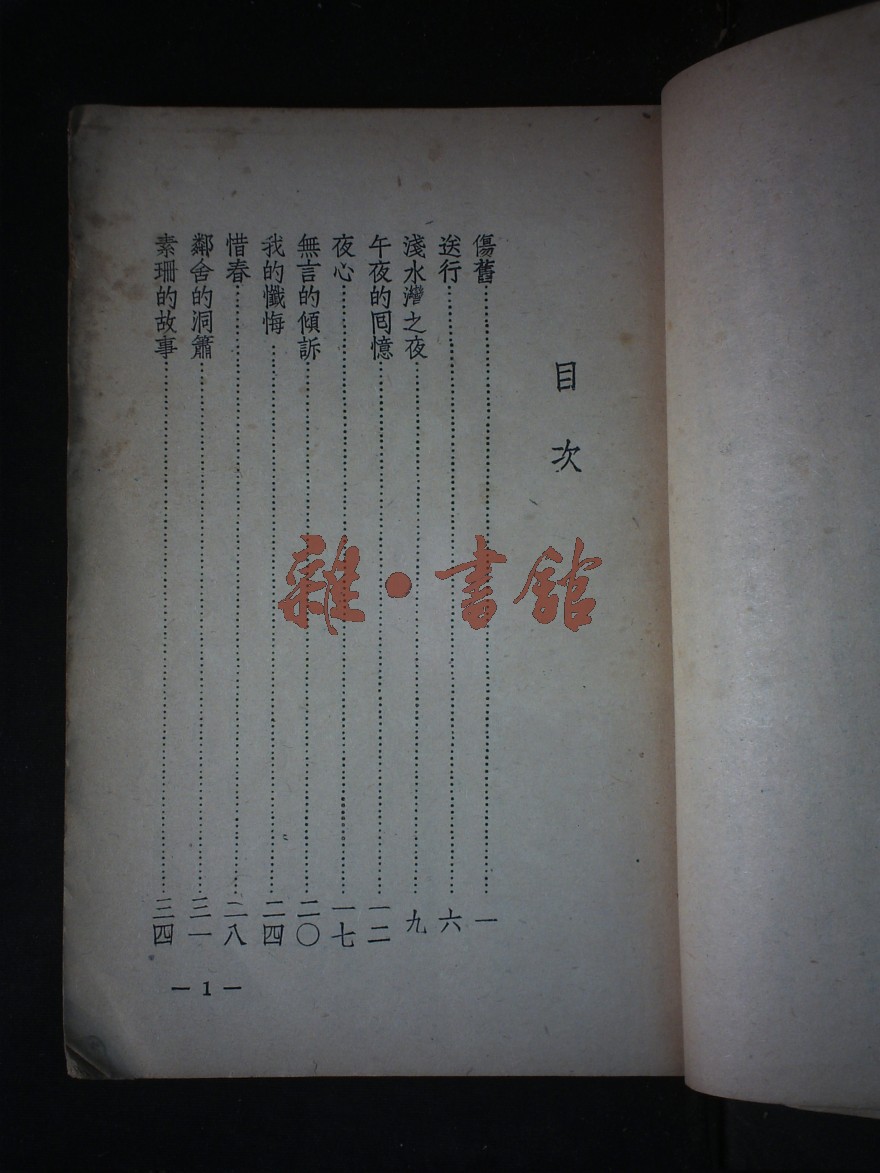 目次
傷舊……一
送行……六
淺水灣之夜……九
午夜的回憶……一二
夜心……一七
無言的傾訴……二〇
我的懺悔……二四
惜春……二八
鄰舍的洞簫……三一
素珊的故事……三四
— 1 —
雜·書館